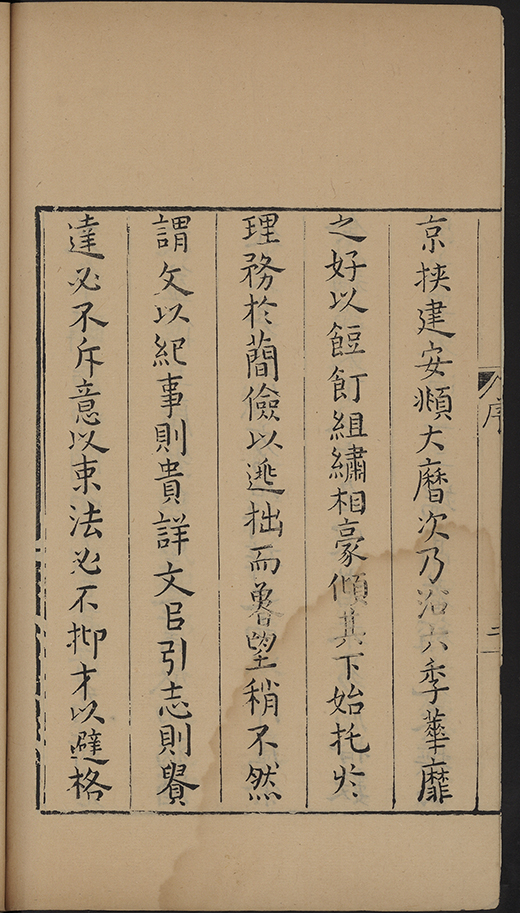 序
二
京挾建安頫大曆次乃沿六季華靡
之好以餖飣組繡相豪傾其下始托於
理務於簡儉以逃拙而魯望稍不然
謂文以紀事則貴詳文以引志則貴
達必不斥意以束法必不抑才以避格